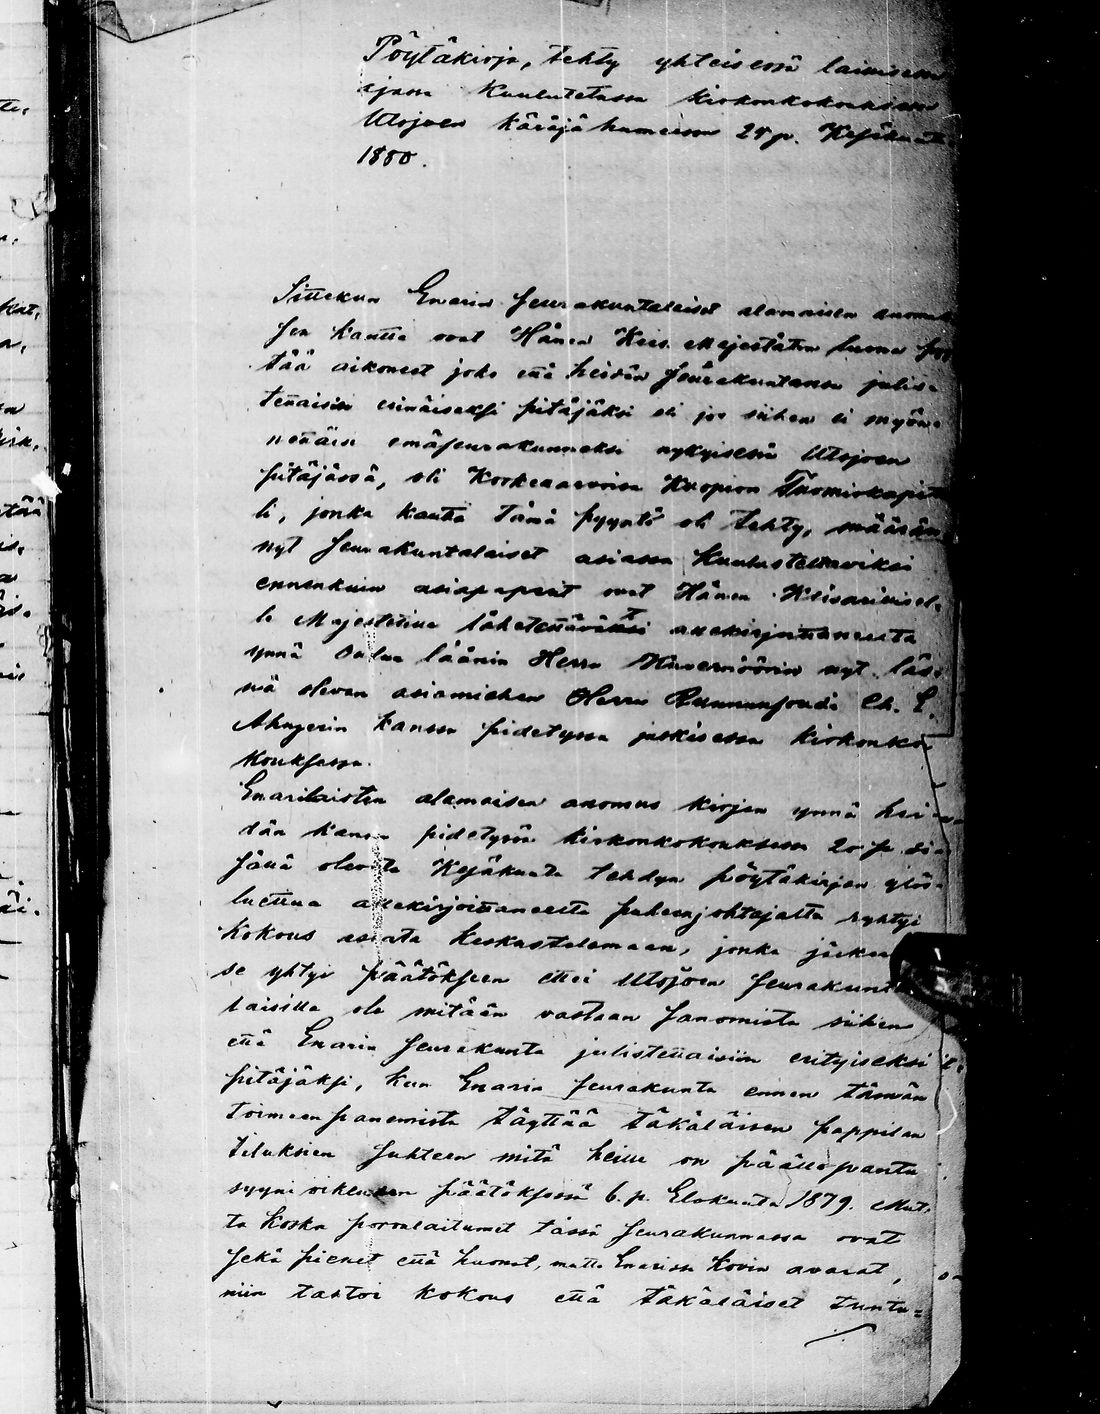 Pöytäkirja, tehty yhteisessä laillisessa
ajassa kuulutetussa kirkonkokouksessa
Utsjoen käräjähuoneessa 25 p. Kesäkuuta
1880.
Sittekun Enarin seurakuntalaiset alamaisen anomuk
sen kautta ovat Hänen Keis. Majestätin luona pyy
tää aikoneet joko että heidän seurakuntansa julis-
tettaisiin erinäiseksi pitäjäksi eli jos siihen ei myön-
nettäisi emäseurakunnaksi nykyisessä Utsjoen
pitäjässä, oli Korkeaarvoisa Kuopion Tuomiokapitu
li, jonka kautta tämä pyyntö oli tehty, määrän
nyt seurakuntalaiset asiassa kuulusteltaviksi
ennenkuin asiapaperit ovat Hänen Keisarillisel-
le Majestetille lähetettäviksi allekirjoittaneelta
ynnä Oulun läänin Herra Kuvernöörin nyt läs-
nä olevan asiamiehen Herra Ruununfoudi Ch. E.
kanssa pidetyssä julkisessa kirkonko
kouksessa.
Enarilaisten alamaisen anomus kirjan ynnä hei
dän kanssa pidetyssä kirkonkokouksessa 20 p. si
sällä olevata Kesäkuuta tehdyn pöytäkirjan ylös-
luettua allekirjoittaneelta puheenjohtajalta ryhtyi
kokous asiata keskustelemaan, jonka jälkeen
se yhtyi päätökseen ettei Utsjoen seurakunta
laisilla ole mitään vastaan sanomista siihen
että Enarin seurakunta julistettaisiin erityiseksi
pitäjäksi, kun Enarin seurakunta ennen tämän
toimeen panemista täyttää täkäläisen pappilan
tiluksien suhteen mitä heille on päällepantu
syyni oikeuden päätöksessä 6. p. Elokuuta 1879. Mut-
ta koska porolaitumet tässä seurakunnassa ovat
sekä pienet että huonot, mutta Enarissa kovin avarat,
niin tahtoi kokous että täkäläiset tuntu=